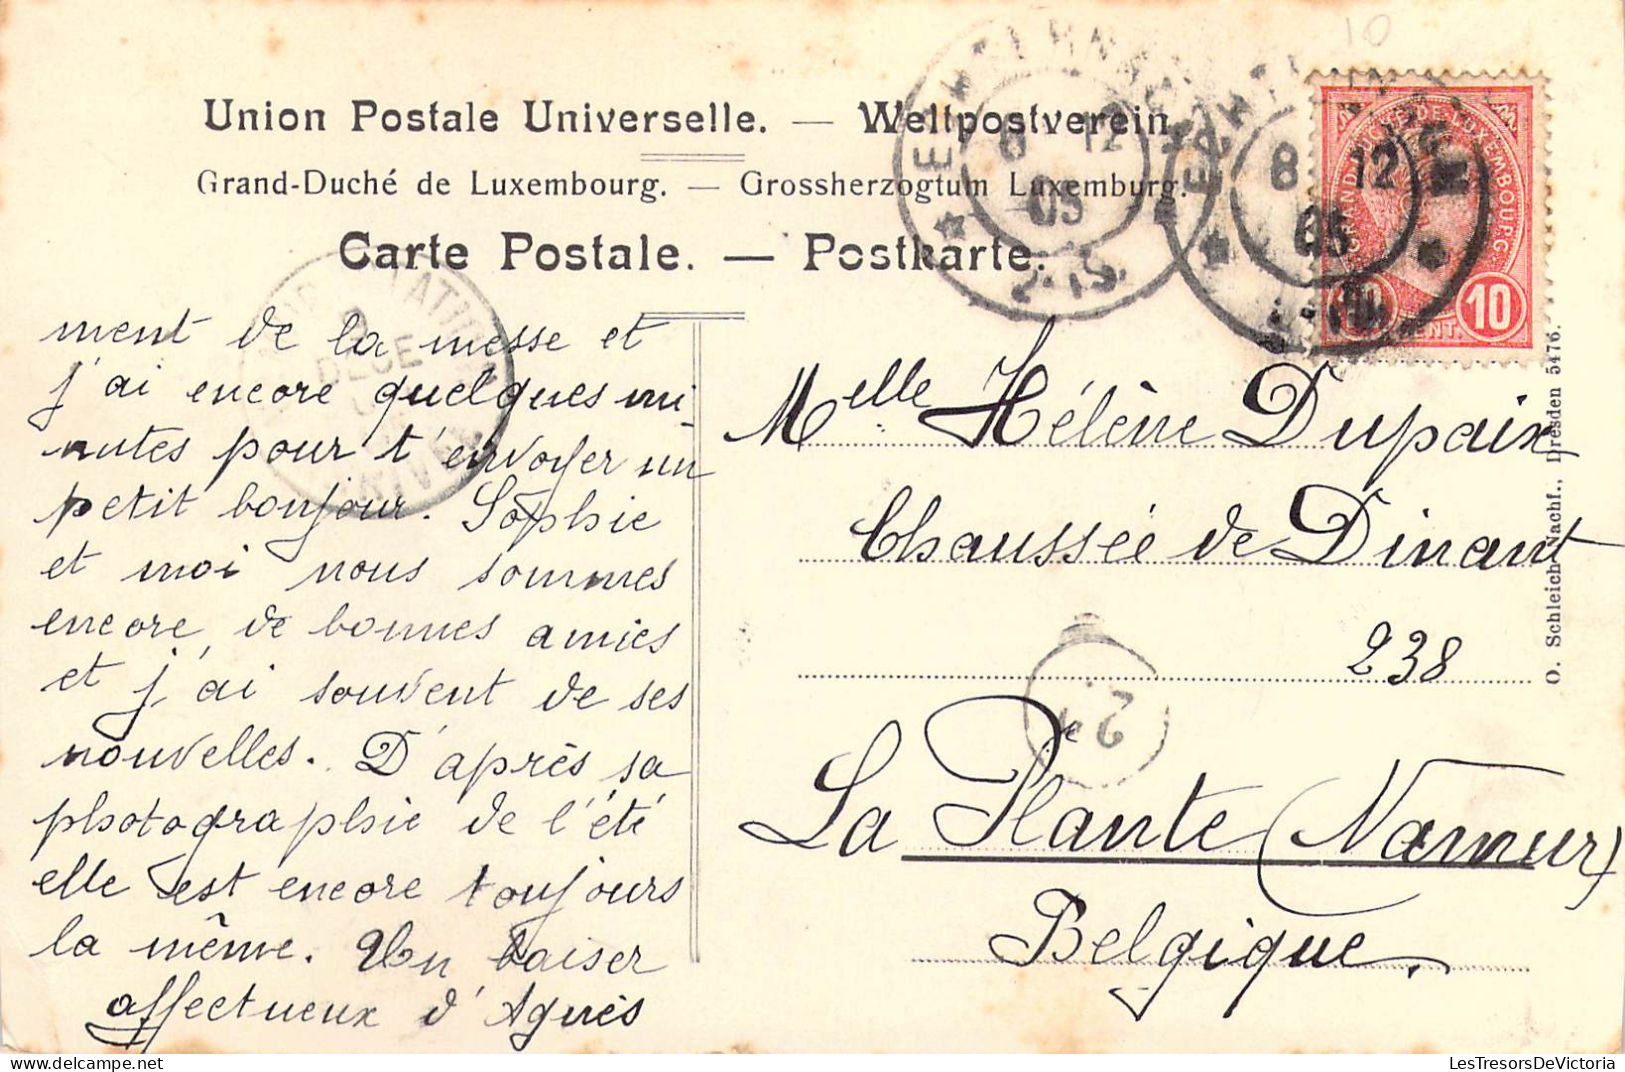 10
Union Postale Universelle. — Weltpostverein.
Grand-Duché de Luxembourg. — Grossherzogtum Luxemburg.
Carte Postale. — Postkarte.
8 12
05
2-3 S.
8 12
05
GRAND DUCHÉ DE LUXEMBOURG
10 10
CENT.
ment de la messe et
j'ai encore quelques mi-
nutes pour t'envoyer un
petit bonjour. Sophie
et moi nous sommes
encore de bonnes amies
et j'ai souvent de ses
nouvelles. D'après sa
photographie de l'été
elle est encore toujours
la même. Un baiser
affectueux d'Agnès
DECE
Melle Hélène Dupaix
Chaussée de Dinant
238
La Plante (Namur)
Belgique.
O. Schleich Nachf., Dresden 5476.
LesTresorsDeVictoria